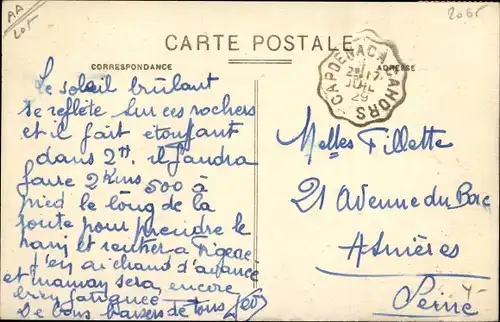 AA
201
2065
CARTE POSTALE
CORRESPONDANCE
ADRESSE
CAPDENAC A CAHORS
2E 17
JUIL
29
Le soleil brûlant
se reflète sur ces rochers
et il fait étouffant
dans 2H. il faudra
faire 2 Kms 500 à
pied le long de la
route pour prendre le
train et rentrer à Figeac
j'en ai chaud d'avance
et maman sera encore
bien fatiguée
De bons baisers de tous
Melles Fillette
21 Avenue du Bac
Asnières
Seine